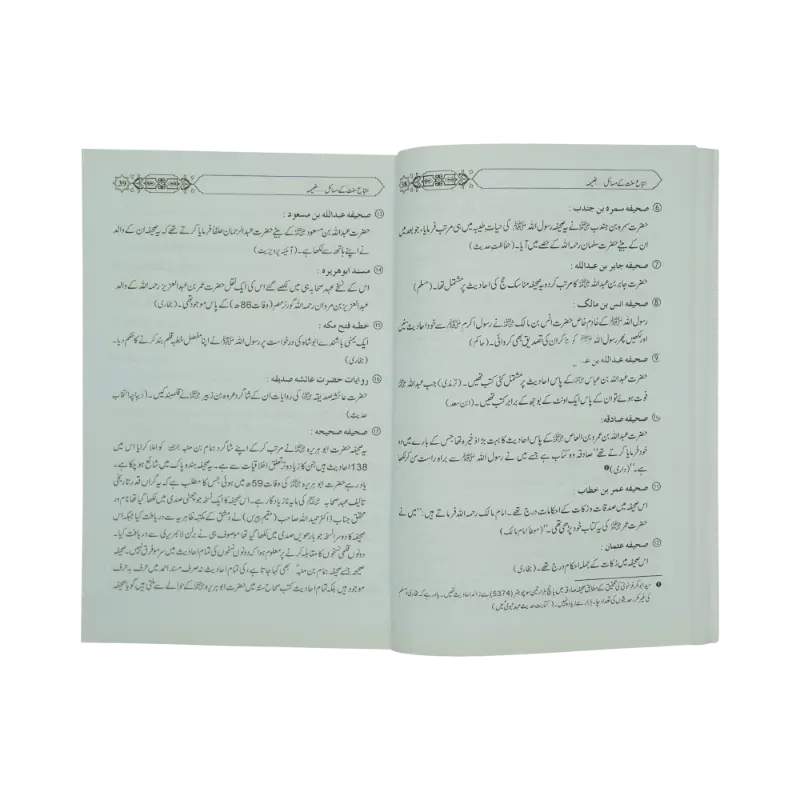 38 اتباع سنت کے مسائل ۔ ضمیمہ
⑥ صحیفہ سمرہ بن جندب :
حضرت سمرہ بن جندب ؓ نے یہ صحیفہ رسول اللہ ﷺ کی حیات طیبہ میں ہی مرتب فرمایا، جو بعد میں
ان کے بیٹے حضرت سلمان رحمہ اللہ کے حصے میں آیا۔ (حفاظت حدیث)
⑦ صحیفہ جابر بن عبداللہ :
حضرت جابر بن عبداللہ ؓ کا مرتب کردہ یہ صحیفہ مناسک حج کی احادیث پر مشتمل تھا۔ (مسلم)
⑧ صحیفہ انس بن مالک :
رسول اللہ ﷺ کے خادم خاص حضرت انس بن مالک ؓ نے رسول اکرم ﷺ سے خود احادیث سنیں
اور لکھیں پھر رسول اللہ ﷺ کو سنا کر ان کی تصدیق بھی کروائی۔ (حاکم)
⑨ صحیفہ عبداللہ بن عـ
حضرت عبداللہ بن عباس ؓ کے پاس احادیث پر مشتمل کئی کتب تھیں۔ (ترمذی) جب عبداللہ ؓ
فوت ہوئے تو ان کے پاس ایک اونٹ کے بوجھ کے برابر کتب تھیں۔ (ابن سعد)
⑩ صحیفہ صادقہ:
حضرت عبداللہ بن عمرو بن العاص ؓ کے پاس احادیث کا بہت بڑا ذخیرہ تھا جس کے بارے میں وہ
خود فرمایا کرتے تھے "صادقہ وہ کتاب ہے جسے میں نے رسول اللہ ﷺ سے براہ راست سن کر لکھا
ہے۔" (دارمی) ❶
⑪ صحیفہ عمر بن خطاب :
اس صحیفہ میں صدقات و زکاۃ کے احکامات درج تھے۔ امام مالک رحمہ اللہ فرماتے ہیں: "میں نے
حضرت عمر ؓ کی یہ کتاب خود پڑھی تھی۔" (موطا امام مالک)
⑫ صحیفہ عثمان :
اس صحیفہ میں زکاۃ کے جملہ احکام درج تھے۔ (بخاری)
❶ سید ابوبکر غزنوی کی تحقیق کے مطابق صحیفہ صادقہ میں پانچ ہزار تین سو چوہتر (5374) سے زائد احادیث تھیں۔ یاد رہے کہ بخاری و مسلم
کی غیر مکرر حدیثوں کی تعداد چار ہزار سے زیادہ نہیں۔ (کتابت حدیث عہد نبوی میں)
39 اتباع سنت کے مسائل ۔ ضمیمہ
⑬ صحیفہ عبداللہ بن مسعود :
حضرت عبداللہ بن مسعود ؓ کے بیٹے حضرت عبدالرحمان حلفاً فرمایا کرتے تھے کہ یہ صحیفہ ان کے والد
نے اپنے ہاتھ سے لکھا ہے۔ (آئینہ پرویزیت)
⑭ مسند ابوھریرہ :
اس کے نسخے عہد صحابہ ہی میں لکھے گئے اس کی ایک نقل حضرت عمر بن عبدالعزیز رحمہ اللہ کے والد
عبدالعزیز بن مروان رحمہ اللہ گورنر مصر (وفات 86ھ) کے پاس موجود تھی۔ (بخاری)
⑮ خطبہ فتح مکہ :
ایک یمنی باشندے ابو شاہ کی درخواست پر رسول اللہ ﷺ نے اپنا مفصل خطبہ قلم بند کرنے کا حکم دیا۔
(بخاری)
⑯ روایات حضرت عائشہ صدیقہ :
حضرت عائشہ صدیقہ ؓ کی روایات ان کے شاگرد عروہ بن زبیر ؓ نے قلمبند کیں۔ (دیباچہ انتخاب
حدیث)
⑰ صحیفہ صحیحہ :
یہ صحیفہ حضرت ابو ہریرہ ؓ نے مرتب کر کے اپنے شاگرد ہمام بن منبہ کو املا کرایا اس میں
138 احادیث ہیں جن کا زیادہ تر تعلق اخلاقیات سے ہے۔ یہ صحیفہ ہند و پاک میں شائع ہو چکا ہے۔
یاد رہے حضرت ابو ہریرہ ؓ کی وفات 59ھ میں ہوئی جس کا مطلب ہے کہ یہ گراں قدر تاریخی
تالیف عہد صحابہ کی مایہ ناز یادگار ہے۔ اس صحیفہ کا ایک نسخہ جو چھٹی صدی میں لکھا گیا تھا نامور
محقق جناب ڈاکٹر حمید اللہ صاحب (مقیم پیرس) نے دمشق کے مکتبہ ظاہریہ سے دریافت کیا جبکہ اس
صحیفہ کا دوسرا نسخہ جو بارھویں صدی میں لکھا گیا تھا موصوف ہی نے برلن لائبریری سے دریافت کیا۔
دونوں قلمی نسخوں کا مقابلہ کرنے پر معلوم ہوا کہ دونوں نسخوں کی تمام احادیث میں سر مو فرق نہیں۔ صحیفہ
صحیحہ جسے صحیفہ ہمام بن منبہ بھی کہا جاتا ہے، کی تمام احادیث نہ صرف مسند احمد میں حرف بہ حرف
موجود ہیں بلکہ تمام احادیث کتب صحاح ستہ میں حضرت ابو ہریرہ ؓ کے حوالے سے ملتی ہیں گویا صحیفہ